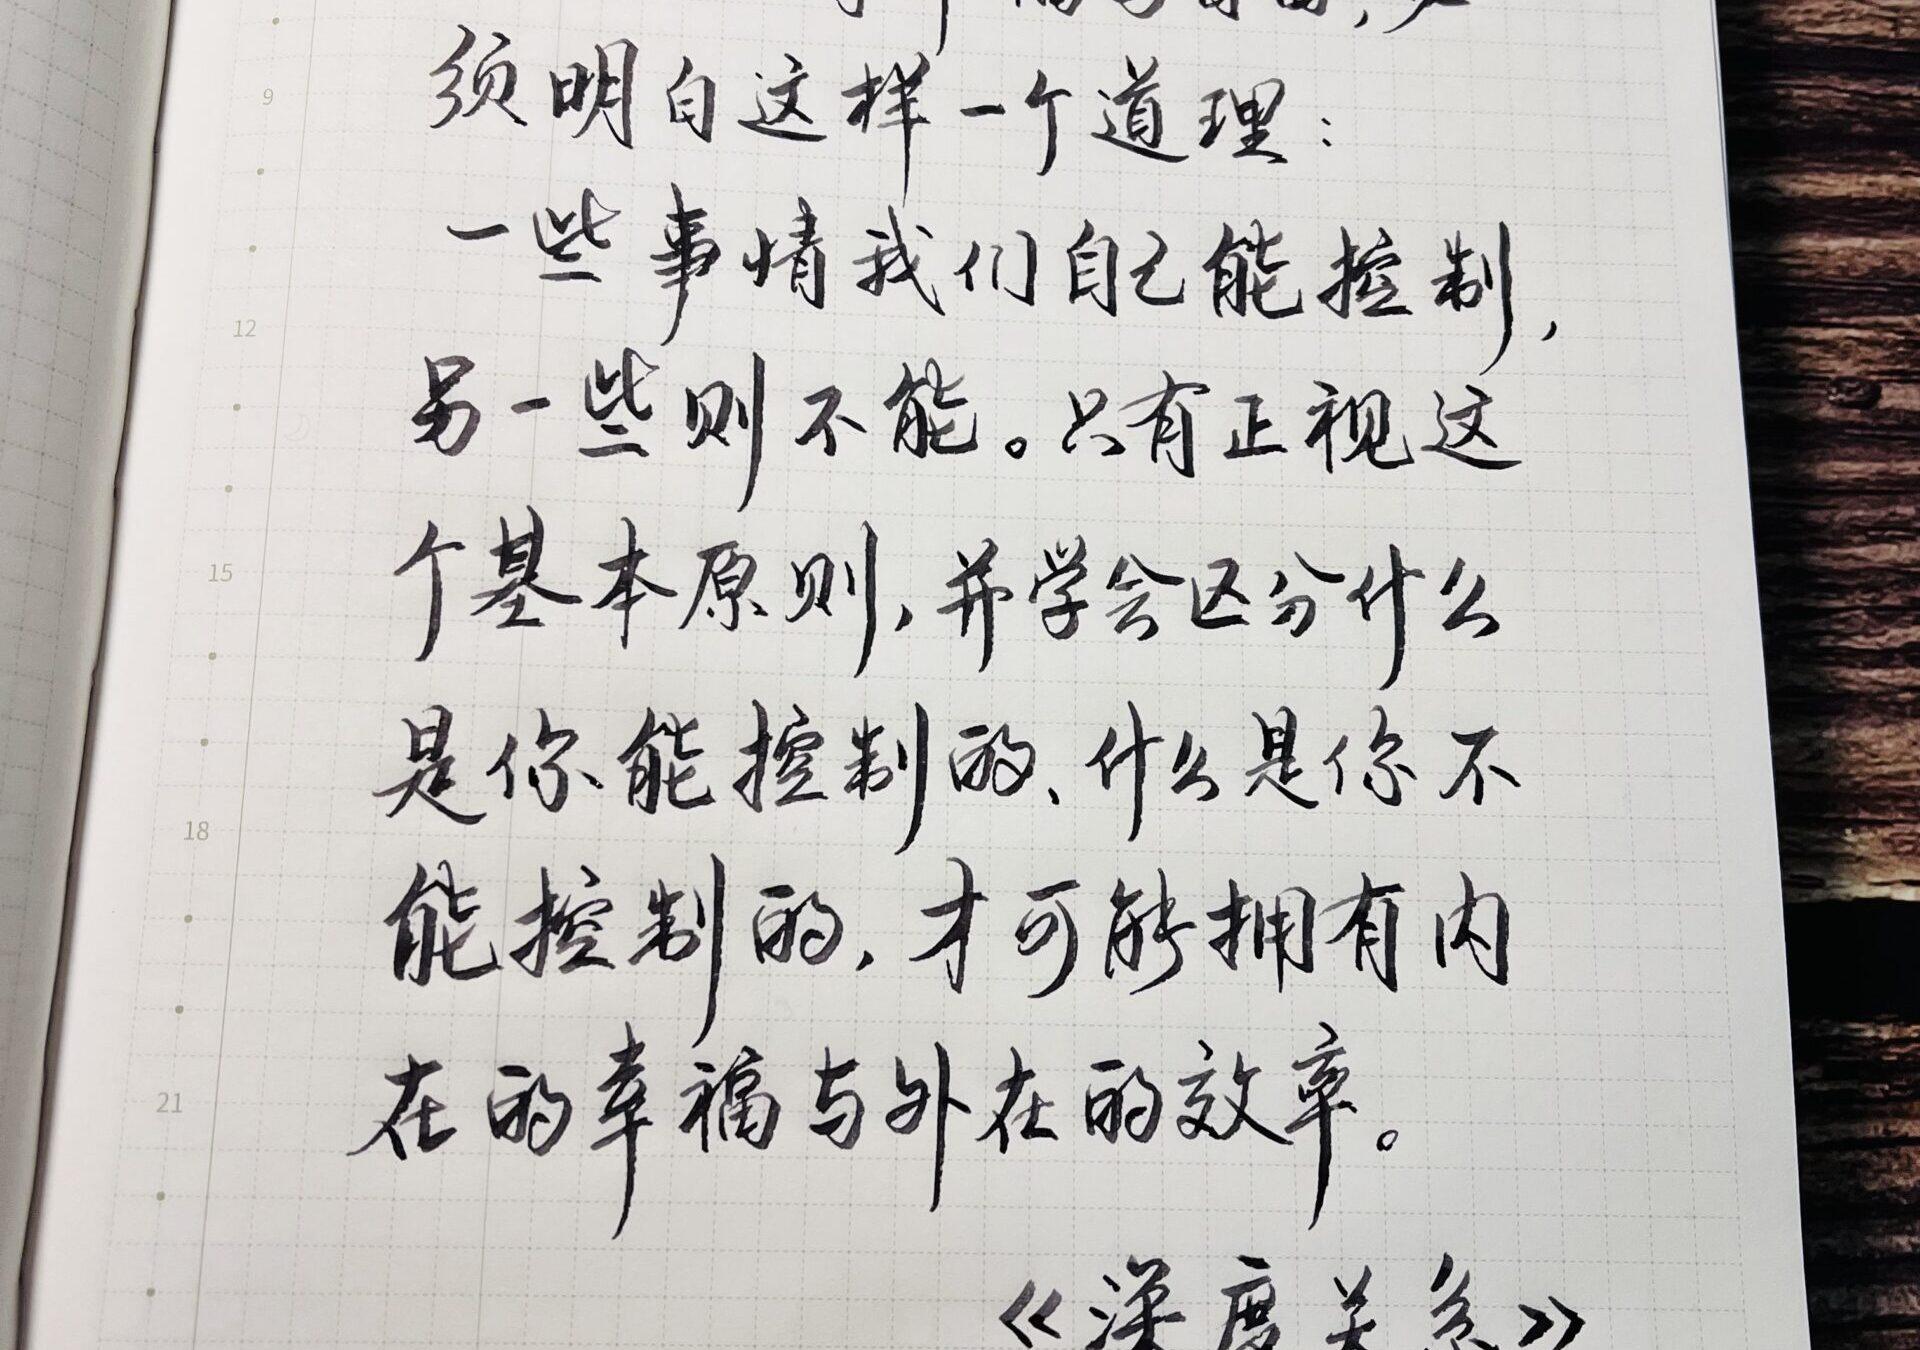 须明白这样一个道理：
9
一些事情我们自己能控制，
12
另一些则不能。只有正视这
个基本原则，并学会区分什么
15
是你能控制的、什么是你不
18
能控制的，才可能拥有内
在的幸福与外在的效率。
21
《深度关系》